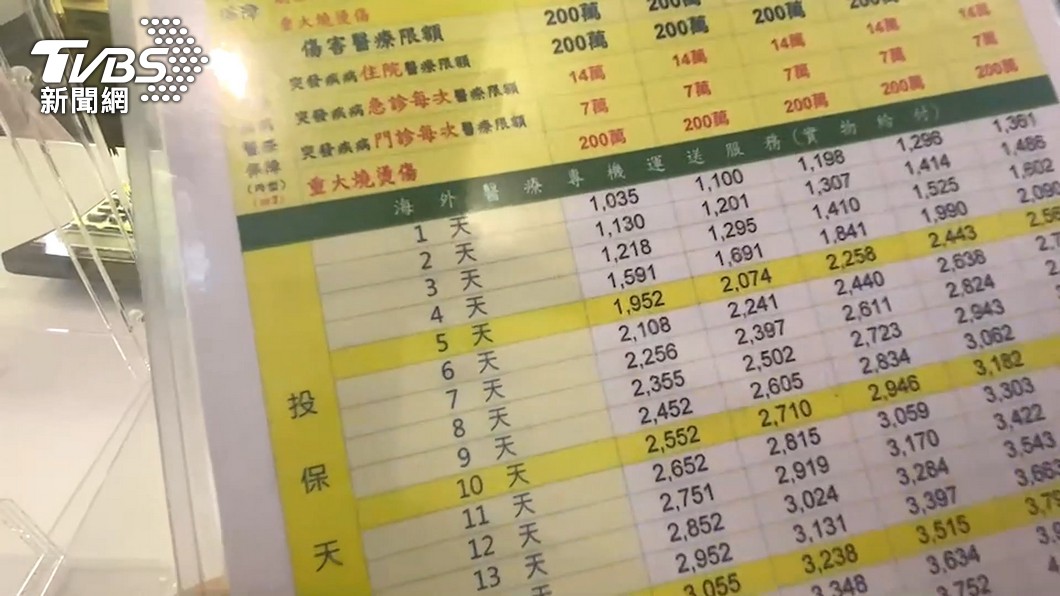 TVBS
新聞網
重大燒燙傷
傷害醫療限額 200萬 200萬
突發疾病住院醫療限額 200萬 200萬 200萬
突發疾病急診每次醫療限額 14萬 14萬 14萬 14萬 14萬
突發疾病門診每次醫療限額 7萬 7萬 7萬 7萬 7萬
重大燒燙傷 200萬 200萬 200萬 200萬 200萬
醫療
保障
(丙型)
海外醫療專機運送服務(實物給付)
1 天 1,035 1,100 1,198 1,296 1,361
2 天 1,130 1,201 1,307 1,414 1,486
3 天 1,218 1,295 1,410 1,525 1,602
4 天 1,591 1,691 1,841 1,990
5 天 1,952 2,074 2,258 2,443
6 天 2,108 2,241 2,440 2,638
7 天 2,256 2,397 2,611 2,824
8 天 2,355 2,502 2,723 2,943
9 天 2,452 2,605 2,834 3,062
10 天 2,552 2,710 2,946 3,182
11 天 2,652 2,815 3,059 3,303
12 天 2,751 2,919 3,170 3,422
13 天 2,852 3,024 3,284 3,543
2,952 3,131 3,397
3,055 3,238 3,515
3,348 3,634
3,752
投保天